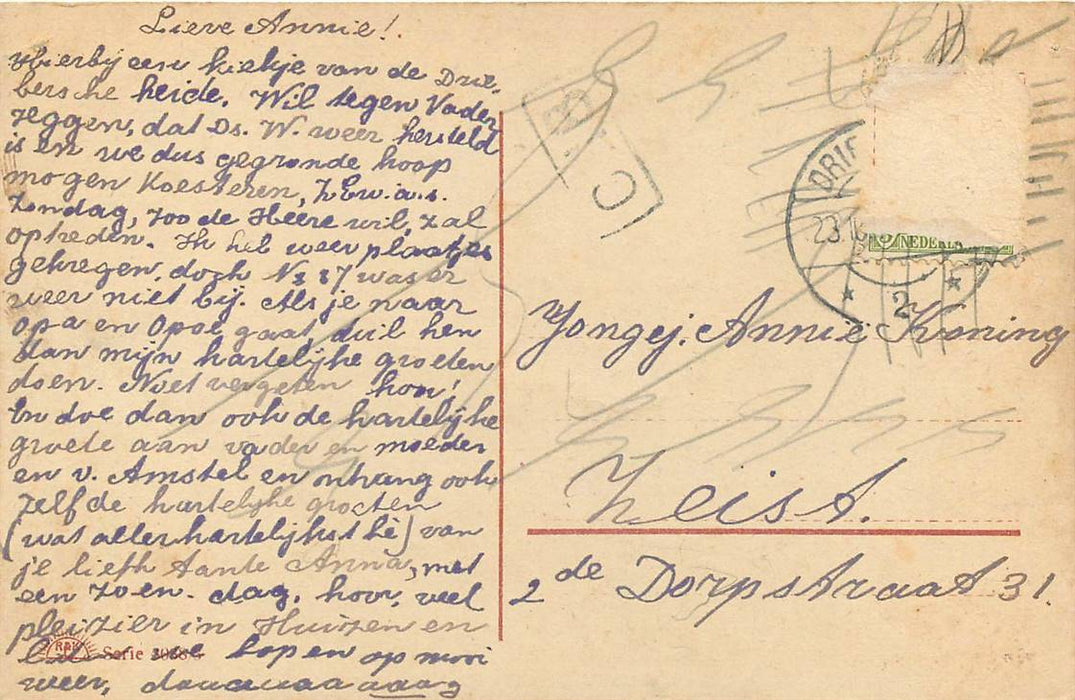 Lieve Annie!
Hierbij een kiekje van de Drie-
bersche heide. Wil tegen Vader
zeggen, dat Ds. W. weer hersteld
is en we dus gegronde hoop
mogen koesteren, ZEw. a.s.
Zondag, zoo de Heere wil, zal
optreden. Ik heb weer plaatjes
gekregen, doch No 87 was er
weer niet bij. Als je naar
Opa en Opoe gaat, wil hen
dan mijn hartelijke groeten
doen. Niet vergeten hoor!
En doe dan ook de hartelijke
groete aan vader en moeder
en v. Amstel en ontvang ook
zelf de hartelijke groeten
(wat allerhartelijkst hè) van
je liefh tante Anna, met
een zoen. dag, hoor, veel
pleizier in Huizen en
we hopen op mooi
weer, daaaaaa aaaag
R&K
Serie 3038
DRIE
23
NEDERLA
2
Jongej. Annie Koning
Zeist.
2de Dorpstraat 31.